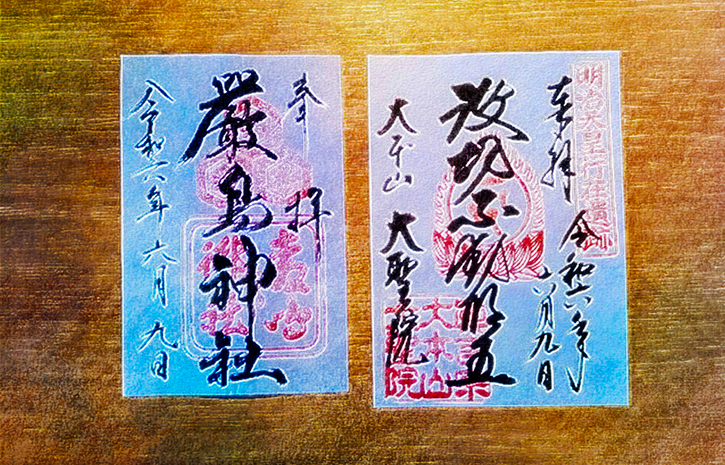 明治天皇行在遺蹟
奉拝
令和六年
六月九日
波切不動明王
大本山
大聖院
奉拝
嚴島神社
令和六年六月九日